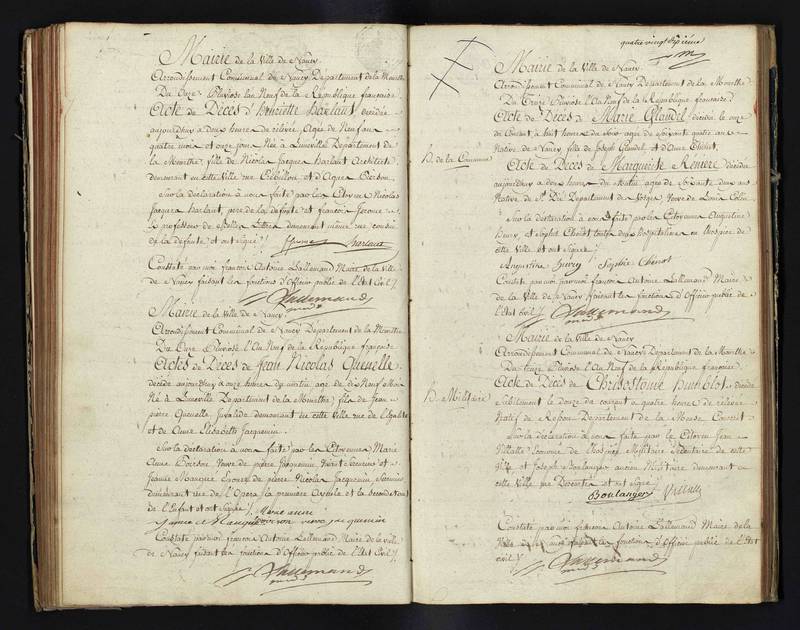 Mairie de la Ville de Nancy
Arrondissement Communal de Nancy Departement de la Meurthe
Du Onze Pluviose l'an Neuf de la République française
Acte de Décès d'henriette harlaut décédée
aujourd'huy a deux heure de relevée, Agée de Neuf ans
quatre mois et onze jours Née a Luneville Département de
la Meurthe, fille de Nicolas Jacques harlaut Architecte
demeurant en cette Ville rue Crébillon et d'Agnes
Sur la déclaration à nous faite par les Citoyens Nicolas
Jacques harlaut, pere de la defunte et francois Jerome
professeur de Belles Lettres demeurant même rue cousin
de la defunte et ont signé /.
harlaut
Constaté par moi francois Antoine Lallemand Maire de la Ville
de Nancy faisant les fonctions d'Officier public de l'Etat Civil /.
Lallemand
Mairie de la Ville de Nancy
Arrondissement Communal de Nancy Departement de la Meurthe
Du Onze Pluviose l'An Neuf de la République française
Actes de Décès de Jean Nicolas Queuelle
décédé aujourd'huy a onze heures du matin agé de dix Neuf Mois
Né a Luneville Departement de la Meurthe, fils de Jean
pierre Queuelle Invalide demeurant en cette Ville rue de l'Egalité
et de Anne Elisabeth Jacquemin.
Sur la déclaration à nous faite par les Citoyennes Marie
Anne Poirson Veuve de pierre Jacquemin,
Jeanne Mangue Epouse de pierre Nicolas Jacquemin,
demeurant rue de l'Opera la premiere Ayeule et la Seconde tante
de l'Enfant et ont signé /. Marie anne
poirson veuve jacquemin
Constaté par moi francois Antoine Lallemand Maire de la ville
de Nancy faisant les fonctions d'Officier public de l'Etat Civil /.
Lallemand
quatre vingt dixieme
Mairie de la Ville de Nancy
Arrondissement Communal de Nancy Departement de la Meurthe
Du Treize Pluviose l'An Neuf de la République francoise
Acte de Décès de Marie Glaudel décédée le onze
du Courant à huit heures du soir agée de soixante quatre ans
Native de Nancy fille de Joseph Glaudel et d'Anne
H. de la Commune
Acte de Décès de Marguerite Rémiere décédée
aujourd'huy a deux heures du Matin, agée de soixante deux ans
Native de St. Dié Departement des Vosges Veuve de Louis Colin
Sur la déclaration à nous faite par les Citoyennes Augustine
henry et Sophie Chenot toutes deux hospitalieres en l'hospice de
cette Ville et ont signés
Augustine henry Sophie Chenot
Constaté par moi francois Antoine Lallemand Maire
de la Ville de Nancy faisant les fonctions d'Officier public de
l'Etat Civil /. Lallemand
Mairie de la Ville de Nancy
Arrondissement Communal de Nancy Departement de la Meurthe
Du treize Pluviose l'An Neuf de la République francoise
H. Militaire
Acte de Décès de Chrisostome humblot décédé
subitement le douze du courant a quatre heures de relevée
Natif de Departement de la Meuse
Sur la déclaration a nous faite par le Citoyen Jean
Econome de l'hospice Militaire Sedentaire de cette
Ville et Joseph Boulanger ancien Militaire demeurant en
cette Ville et ont signé
Boulanger
Constaté par moi francois Antoine Lallemand Maire de la
Ville de Nancy faisant les fonctions d'Officier public de l'Etat
civil /. Lallemand